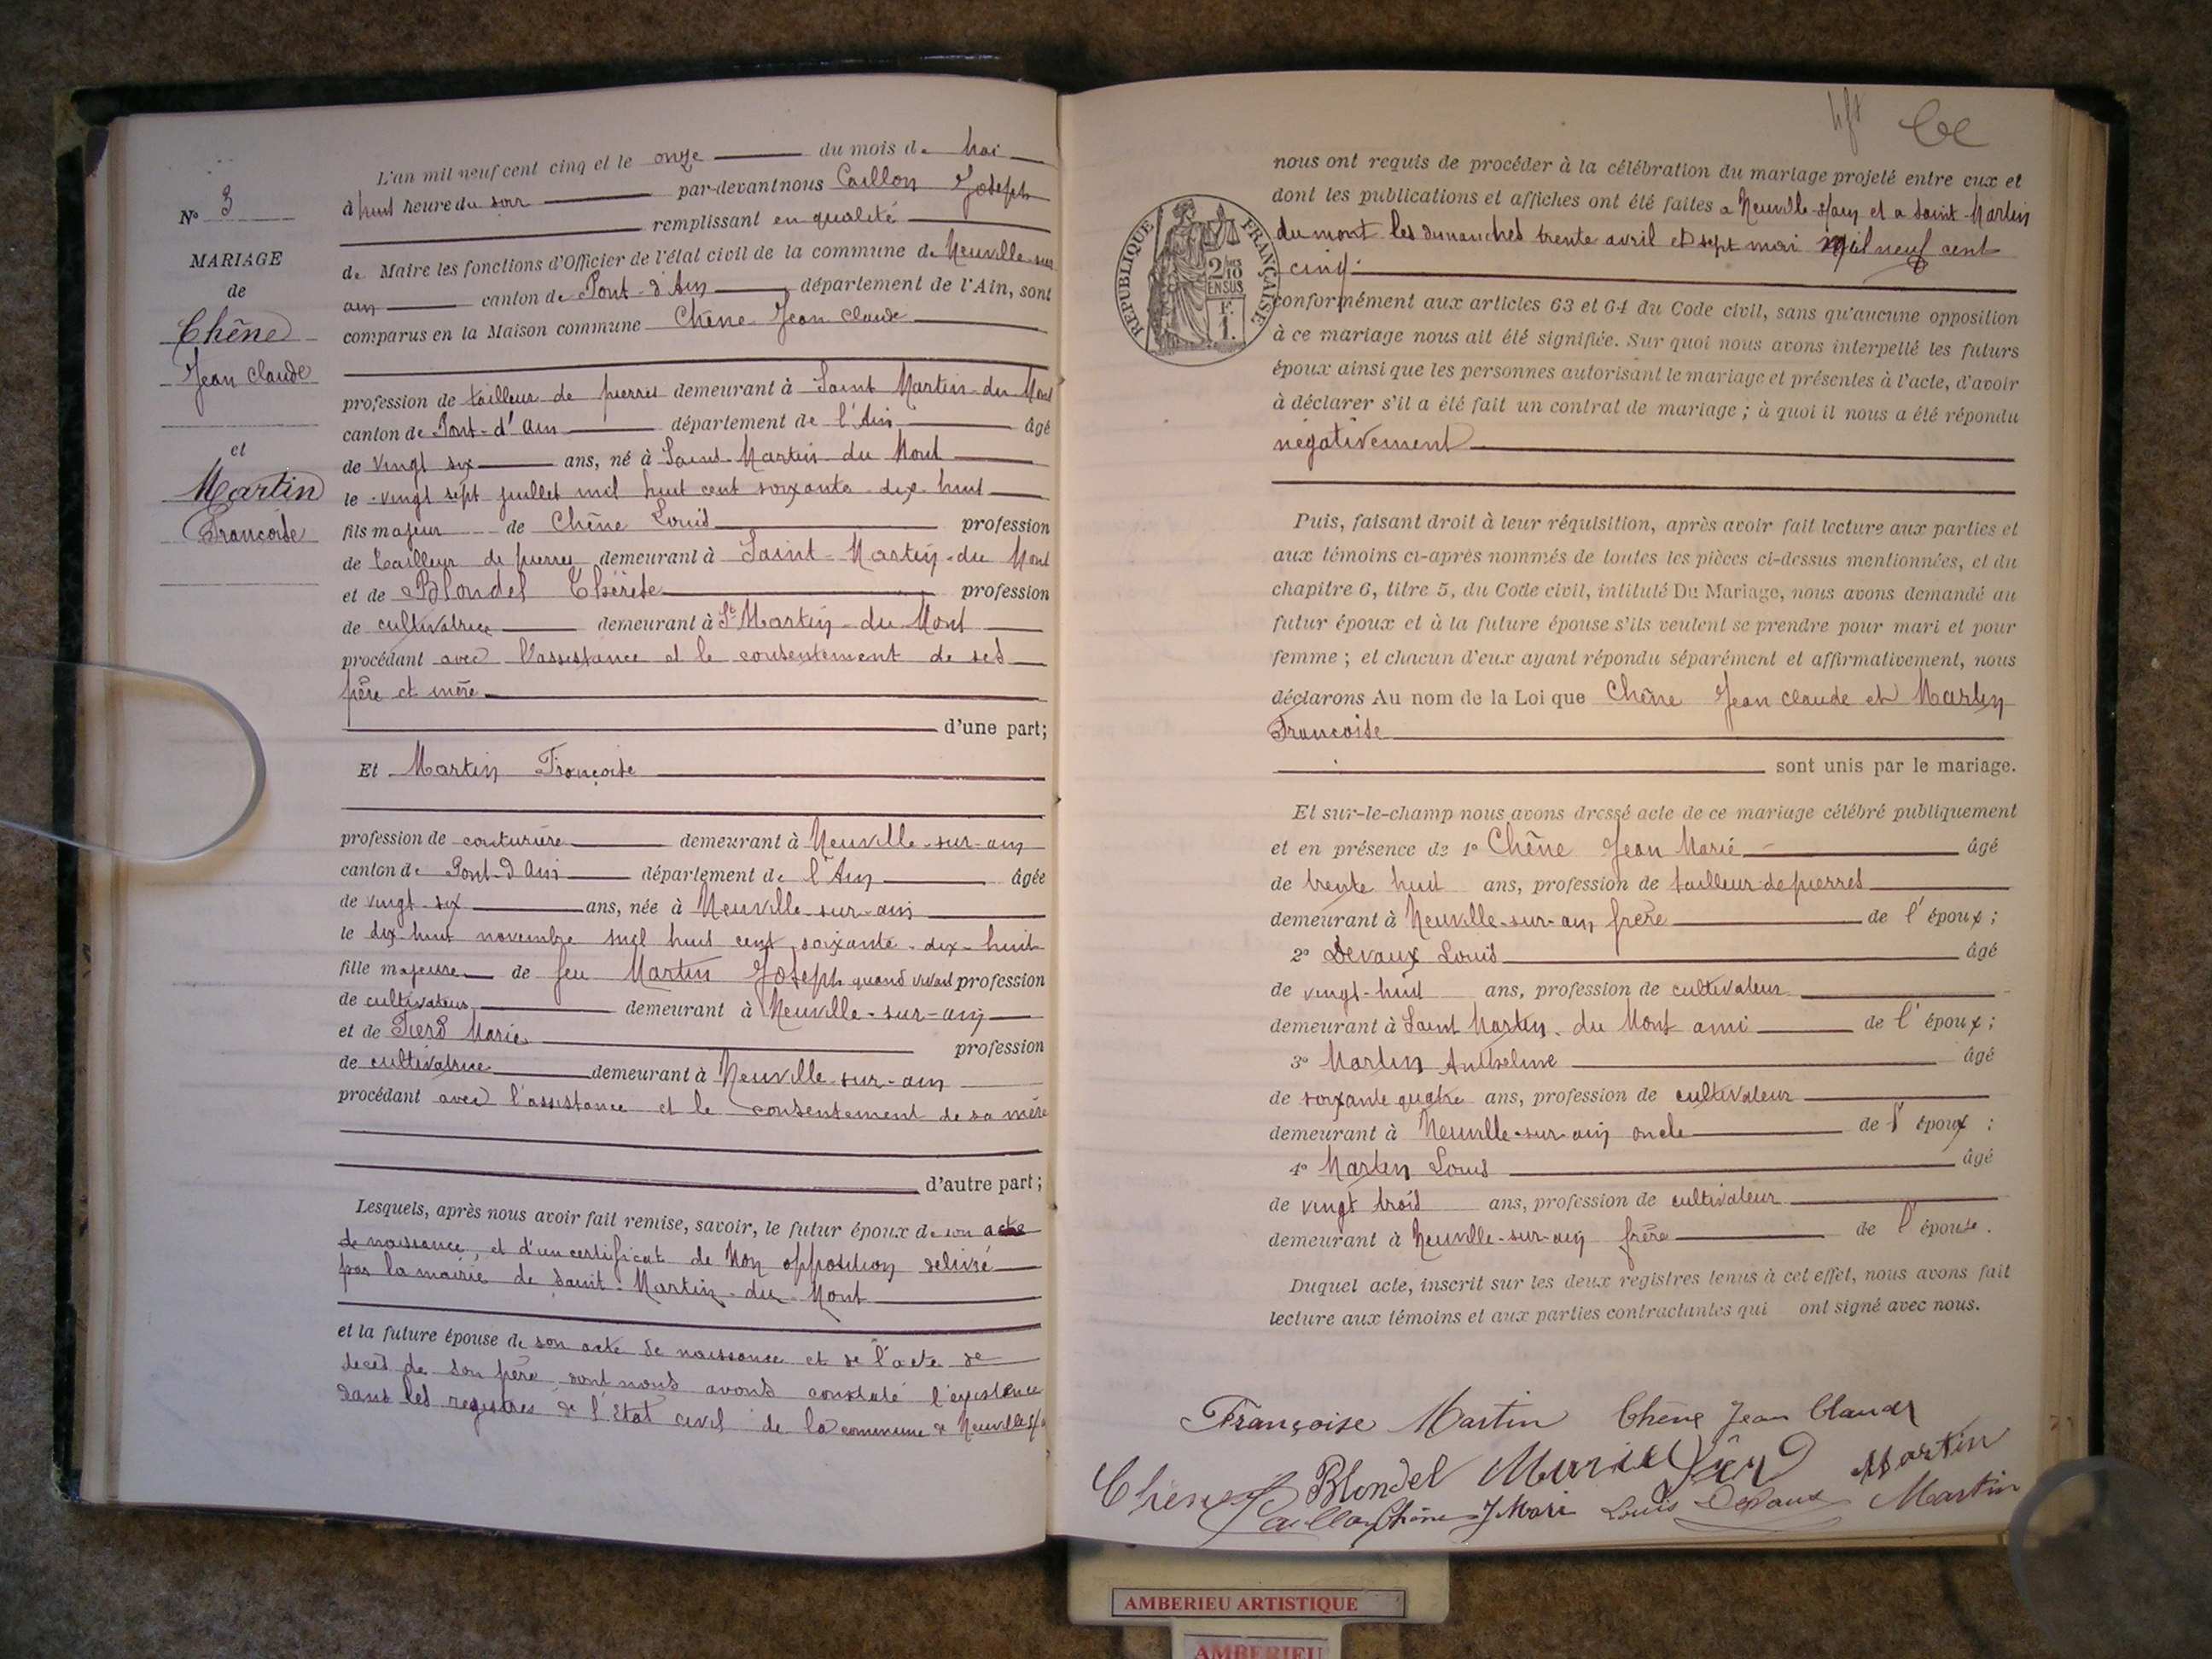 N° 3
MARIAGE
de
Chêne
Jean Claude
et
Martin
Francoise
L'an mil neuf cent cinq et le onze du mois de Mai
à huit heure du soir par-devant nous Caillon Joseph
remplissant en qualité
de Maire les fonctions d'Officier de l'état civil de la commune de Neuville-sur
ain canton de Pont-d'Ain département de l'Ain, sont
comparus en la Maison commune Chêne Jean Claude
profession de tailleur de pierres demeurant à Saint Martin-du Mont
canton de Pont-d'ain département de l'Ain âgé
de vingt six ans, né à Saint-Martin du Mont
le vingt sept juillet mil huit cent soixante-dix-huit
fils majeur de Chêne Louis profession
de tailleur de pierres demeurant à Saint-Martin-du Mont
et de Blondel Thérèse profession
de cultivatrice demeurant à St Martin-du Mont
procédant avec l'assistance et le consentement de ses
père et mère
d'une part;
Et Martin Françoise
profession de couturière demeurant à Neuville-sur-ain
canton de Pont-d'Ain département de l'Ain âgée
de vingt-six ans, née à Neuville-sur-ain
le dix-huit novembre mil huit cent soixante-dix-huit
fille majeure de feu Martin Joseph quand vivait profession
de cultivateur demeurant à Neuville-sur-ain
et de Marie profession
de cultivatrice demeurant à Neuville-sur-ain
procédant avec l'assistance et le consentement de sa mère
d'autre part;
Lesquels, après nous avoir fait remise, savoir, le futur époux de son acte
de naissance, et d'un certificat de Non opposition delivré
par la mairie de Saint-Martin-du-Mont
et la future épouse de son acte de naissance et de l'acte de
decès de son père dont nous avons constaté l'existence
dans les registres de l'Etat civil de la commune de Neuville s/a
nous ont requis de procéder à la célébration du mariage projeté entre eux et
dont les publications et affiches ont été faites a Neuville-s/ain et a Saint-Martin
du mont les dimanches trente avril et sept mai mil neuf cent
cinq
RÉPUBLIQUE FRANÇAISE
2/10 EN SUS
F. 1.
conformément aux articles 63 et 64 du Code civil, sans qu'aucune opposition
à ce mariage nous ait été signifiée. Sur quoi nous avons interpellé les futurs
époux ainsi que les personnes autorisant le mariage et présentes à l'acte, d'avoir
à déclarer s'il a été fait un contrat de mariage ; à quoi il nous a été répondu
négativement
Puis, faisant droit à leur réquisition, après avoir fait lecture aux parties et
aux témoins ci-après nommés de toutes les pièces ci-dessus mentionnées, et du
chapitre 6, titre 5, du Code civil, intitulé Du Mariage, nous avons demandé au
futur époux et à la future épouse s'ils veulent se prendre pour mari et pour
femme ; et chacun d'eux ayant répondu séparément et affirmativement, nous
déclarons Au nom de la Loi que Chêne Jean Claude et Martin
Francoise
sont unis par le mariage.
Et sur-le-champ nous avons dressé acte de ce mariage célébré publiquement
et en présence de 1° Chêne Jean Marie âgé
de trente huit ans, profession de tailleur de pierres
demeurant à Neuville-sur-ain frère de l'époux ;
2° Devaux Louis âgé
de vingt-huit ans, profession de cultivateur
demeurant à Saint Martin-du Mont ami de l'époux ;
3° Martin Anthelme âgé
de soixante quatre ans, profession de cultivateur
demeurant à Neuville-sur-ain oncle de l'époux ;
4° Martin Louis âgé
de vingt trois ans, profession de cultivateur
demeurant à Neuville-sur-ain frère de l'épouse.
Duquel acte, inscrit sur les deux registres tenus à cet effet, nous avons fait
lecture aux témoins et aux parties contractantes qui ont signé avec nous.
Françoise Martin Chêne Jean Claude
Chêne Blondel Marie Martin
Caillon Chêne J Mari Louis Devaux Martin
AMBERIEU ARTISTIQUE
AMBERIEU